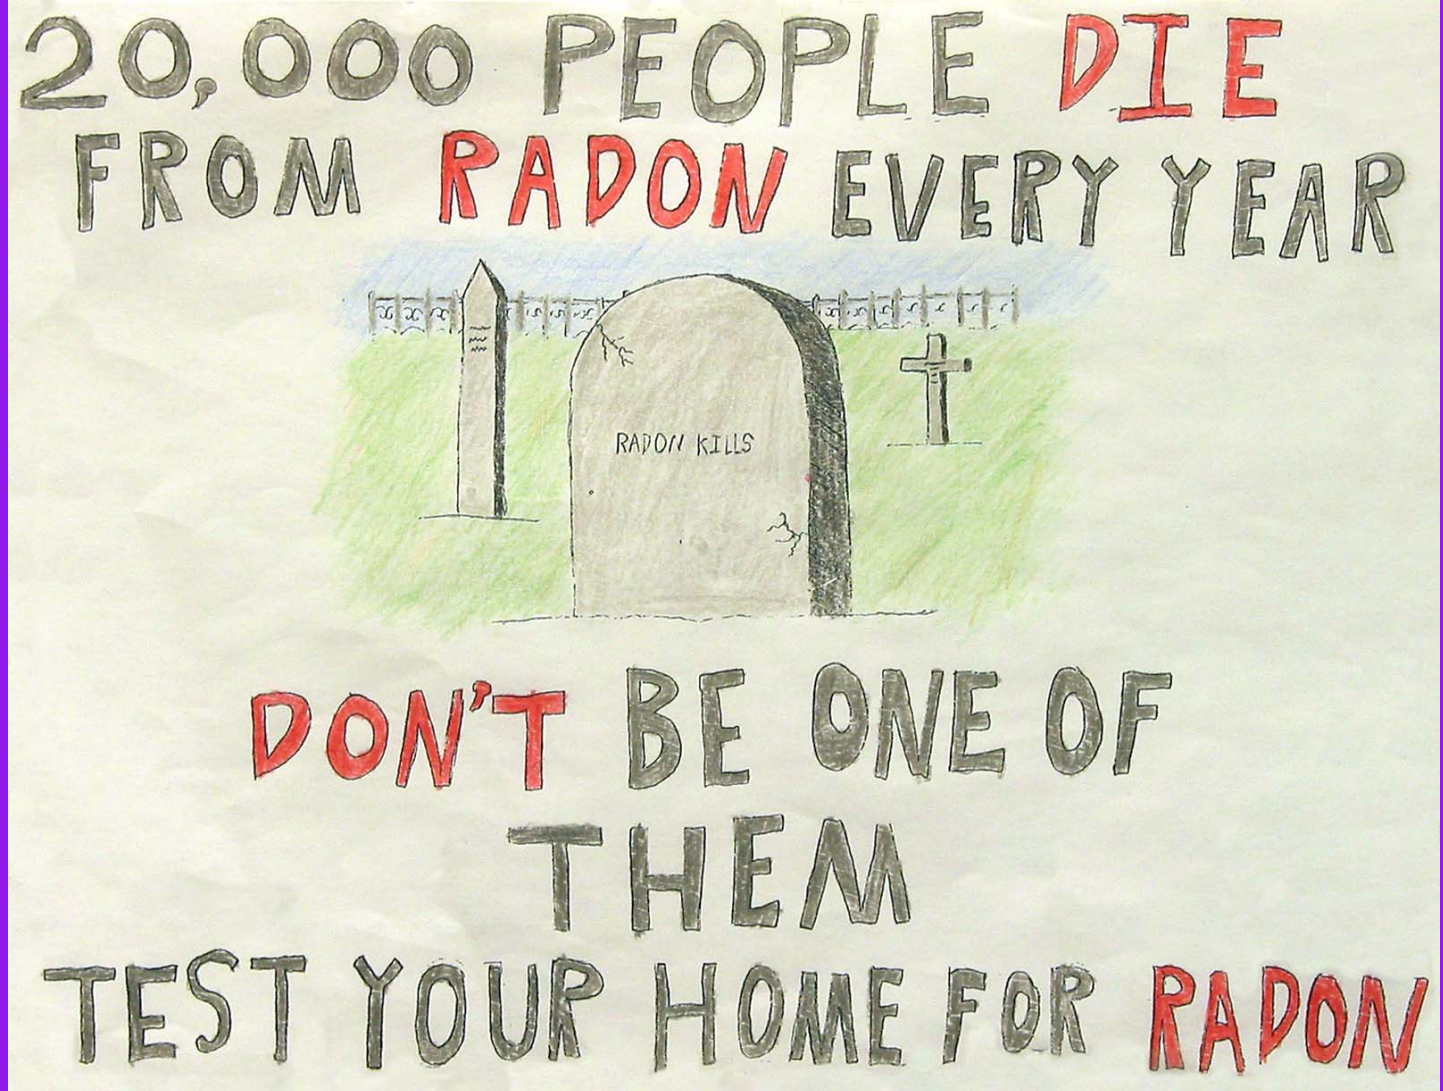 20,000 PEOPLE DIE
FROM RADON EVERY YEAR
RADON KILLS
DON'T BE ONE OF
THEM
TEST YOUR HOME FOR RADON